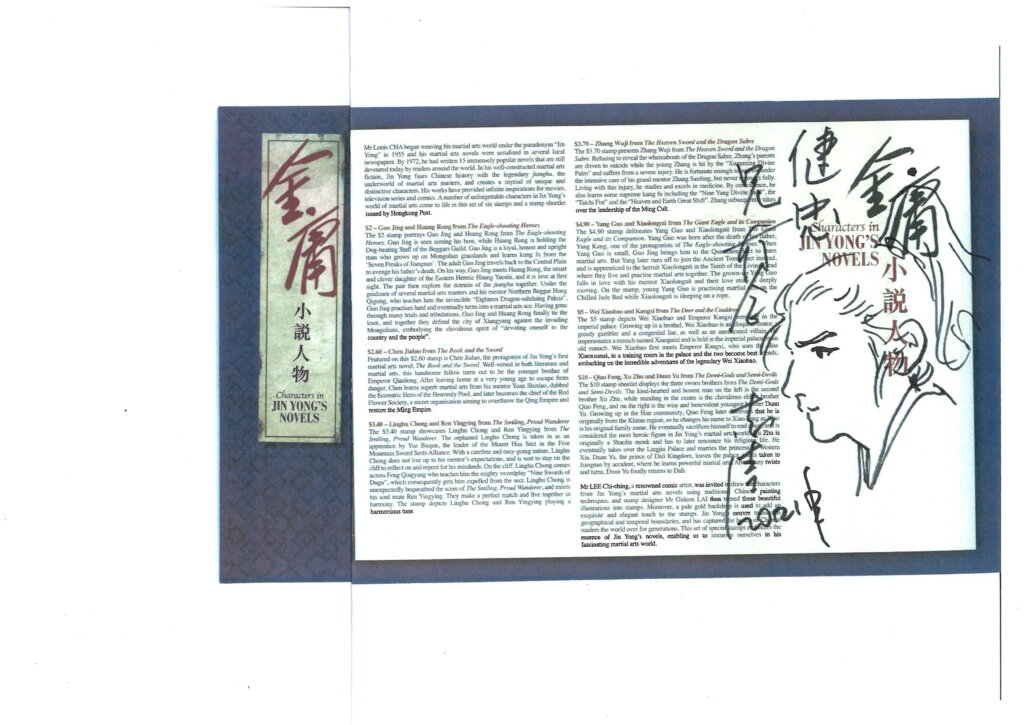 金庸
小說人物
Characters in
JIN YONG'S
NOVELS
Mr Louis CHA began weaving his martial arts world under the pseudonym "Jin
Yong" in 1955 and his martial arts novels were serialised in several local
newspapers. By 1972, he had written 15 immensely popular novels that are still
devoured today by readers around the world. In his well-constructed martial arts
fiction, Jin Yong fuses Chinese history with the legendary jianghu, the
underworld of martial arts masters, and creates a myriad of unique and
distinctive characters. His works have provided infinite inspirations for movies,
television series and comics. A number of unforgettable characters in Jin Yong's
world of martial arts come to life in this set of six stamps and a stamp sheetlet
issued by Hongkong Post.
$2 – Guo Jing and Huang Rong from The Eagle-shooting Heroes
The $2 stamp portrays Guo Jing and Huang Rong from The Eagle-shooting
Heroes. Guo Jing is seen aiming his bow, while Huang Rong is holding the
Dog-beating Staff of the Beggars Guild. Guo Jing is a loyal, honest and upright
man who grows up on Mongolian grasslands and learns kung fu from the
"Seven Freaks of Jiangnan". The adult Guo Jing travels back to the Central Plain
to avenge his father's death. On his way, Guo Jing meets Huang Rong, the smart
and clever daughter of the Eastern Heretic Huang Yaoshi, and it is love at first
sight. The pair then explore the domain of the jianghu together. Under the
guidance of several martial arts masters and his mentor Northern Beggar Hong
Qigong, who teaches him the invincible "Eighteen Dragon-subduing Palms",
Guo Jing practises hard and eventually turns into a martial arts ace. Having gone
through many trials and tribulations, Guo Jing and Huang Rong finally tie the
knot, and together they defend the city of Xiangyang against the invading
Mongolians, embodying the chivalrous spirit of "devoting oneself to the
country and the people".
$2.60 – Chen Jialuo from The Book and the Sword
Featured on this $2.60 stamp is Chen Jialuo, the protagonist of Jin Yong's first
martial arts novel, The Book and the Sword. Well-versed in both literature and
martial arts, this handsome fellow turns out to be the younger brother of
Emperor Qianlong. After leaving home at a very young age to escape from
danger, Chen learns superb martial arts from his mentor Yuan Shixiao, dubbed
the Eccentric Hero of the Heavenly Pool, and later becomes the chief of the Red
Flower Society, a secret organisation aiming to overthrow the Qing Empire and
restore the Ming Empire.
$3.40 – Linghu Chong and Ren Yingying from The Smiling, Proud Wanderer
The $3.40 stamp showcases Linghu Chong and Ren Yingying from The
Smiling, Proud Wanderer. The orphaned Linghu Chong is taken in as an
apprentice by Yue Buqun, the leader of the Mount Hua Sect in the Five
Mountain Sword Sects Alliance. With a carefree and easy-going nature, Linghu
Chong does not live up to his mentor's expectations, and is sent to stay on the
cliff to reflect on and repent for his misdeeds. On the cliff, Linghu Chong comes
across Feng Qingyang who teaches him the mighty swordplay "Nine Swords of
Dugu", which consequently gets him expelled from the sect. Linghu Chong is
unexpectedly bequeathed the score of The Smiling, Proud Wanderer, and meets
his soul mate Ren Yingying. They make a perfect match and live together in
harmony. The stamp depicts Linghu Chong and Ren Yingying playing a
harmonious tune.
$3.70 – Zhang Wuji from The Heaven Sword and the Dragon Sabre
The $3.70 stamp presents Zhang Wuji from The Heaven Sword and the Dragon
Sabre. Refusing to reveal the whereabouts of the Dragon Sabre, Zhang's parents
are driven to suicide while the young Zhang is hit by the "Xuanming Divine
Palm" and suffers from a severe injury. He is fortunate enough to be under
the intensive care of his grand mentor Zhang Sanfeng, but never fully.
Living with this injury, he studies and excels in medicine. By coincidence, he
also learns some supreme kung fu including the "Nine Yang Divine", the
"Taichi Fist" and the "Heaven and Earth Great Shift". Zhang subsequently takes
over the leadership of the Ming Cult.
$4.90 – Yang Guo and Xiaolongnü from The Giant Eagle and its Companion
The $4.90 stamp delineates Yang Guo and Xiaolongnü from The Giant
Eagle and its Companion. Yang Guo was born after the death of his father,
Yang Kang, one of the protagonists of The Eagle-shooting Heroes. When
Yang Guo is small, Guo Jing brings him to the Quanzhen to learn
martial arts. But Yang later runs off to join the Ancient Tomb instead,
and is apprenticed to the hermit Xiaolongnü in the Tomb of the Living Dead
where they live and practise martial arts together. The grown-up Yang Guo
falls in love with his mentor Xiaolongnü and their love story is deeply
moving. On the stamp, young Yang Guo is practising martial arts on the
Chilled Jade Bed while Xiaolongnü is sleeping on a rope.
$5 – Wei Xiaobao and Kangxi from The Deer and the Cauldron
The $5 stamp depicts Wei Xiaobao and Emperor Kangxi in the
imperial palace. Growing up in a brothel, Wei Xiaobao is an
greedy gambler and a congenital liar, as well as an villain
impersonates a eunuch named Xiaoguizi and is held in the imperial palace
old eunuch. Wei Xiaobao first meets Emperor Kangxi, who uses the
Xiaoxuanzi, in a training room in the palace and the two become best friends,
embarking on the incredible adventures of the legendary Wei Xiaobao.
$10 – Qiao Feng, Xu Zhu and Duan Yu from The Demi-Gods and Semi-Devils
The $10 stamp sheetlet displays the three sworn brothers from The Demi-Gods
and Semi-Devils. The kind-hearted and honest man on the left is the second
brother Xu Zhu, while standing in the centre is the chivalrous eldest brother
Qiao Feng, and on the right is the wise and benevolent youngest brother Duan
Yu. Growing up in the Han community, Qiao Feng later that he is
originally from the Khitan region, so he changes his name to Xiao Feng as
is his original family name. He eventually sacrifices himself to end and is
considered the most heroic figure in Jin Yong's martial arts world. Xu Zhu is
originally a Shaolin monk and has to later renounce his religious life. He
eventually takes over the Lingjiu Palace and marries the princess of Western
Xia. Duan Yu, the prince of Dali Kingdom, leaves the palace is taken to
Jiangnan by accident, where he learns powerful martial arts. After many twists
and turns, Duan Yu finally returns to Dali.
Mr LEE Chi-ching, a renowned comic artist, was invited to draw the characters
from Jin Yong's martial arts novels using traditional Chinese painting
techniques, and stamp designer Mr Gideon LAI then turned these beautiful
illustrations into stamps. Moreover, a pale gold backdrop is used to add an
exquisite and elegant touch to the stamps. Jin Yong's oeuvre
geographical and temporal boundaries, and has captured the
readers the world over for generations. This set of special stamps the
essence of Jin Yong's novels, enabling us to immerse ourselves in his
fascinating martial arts world.
金庸
Characters in
JIN YONG'S
NOVELS
小說人物
健忠
兄
李志清
2012